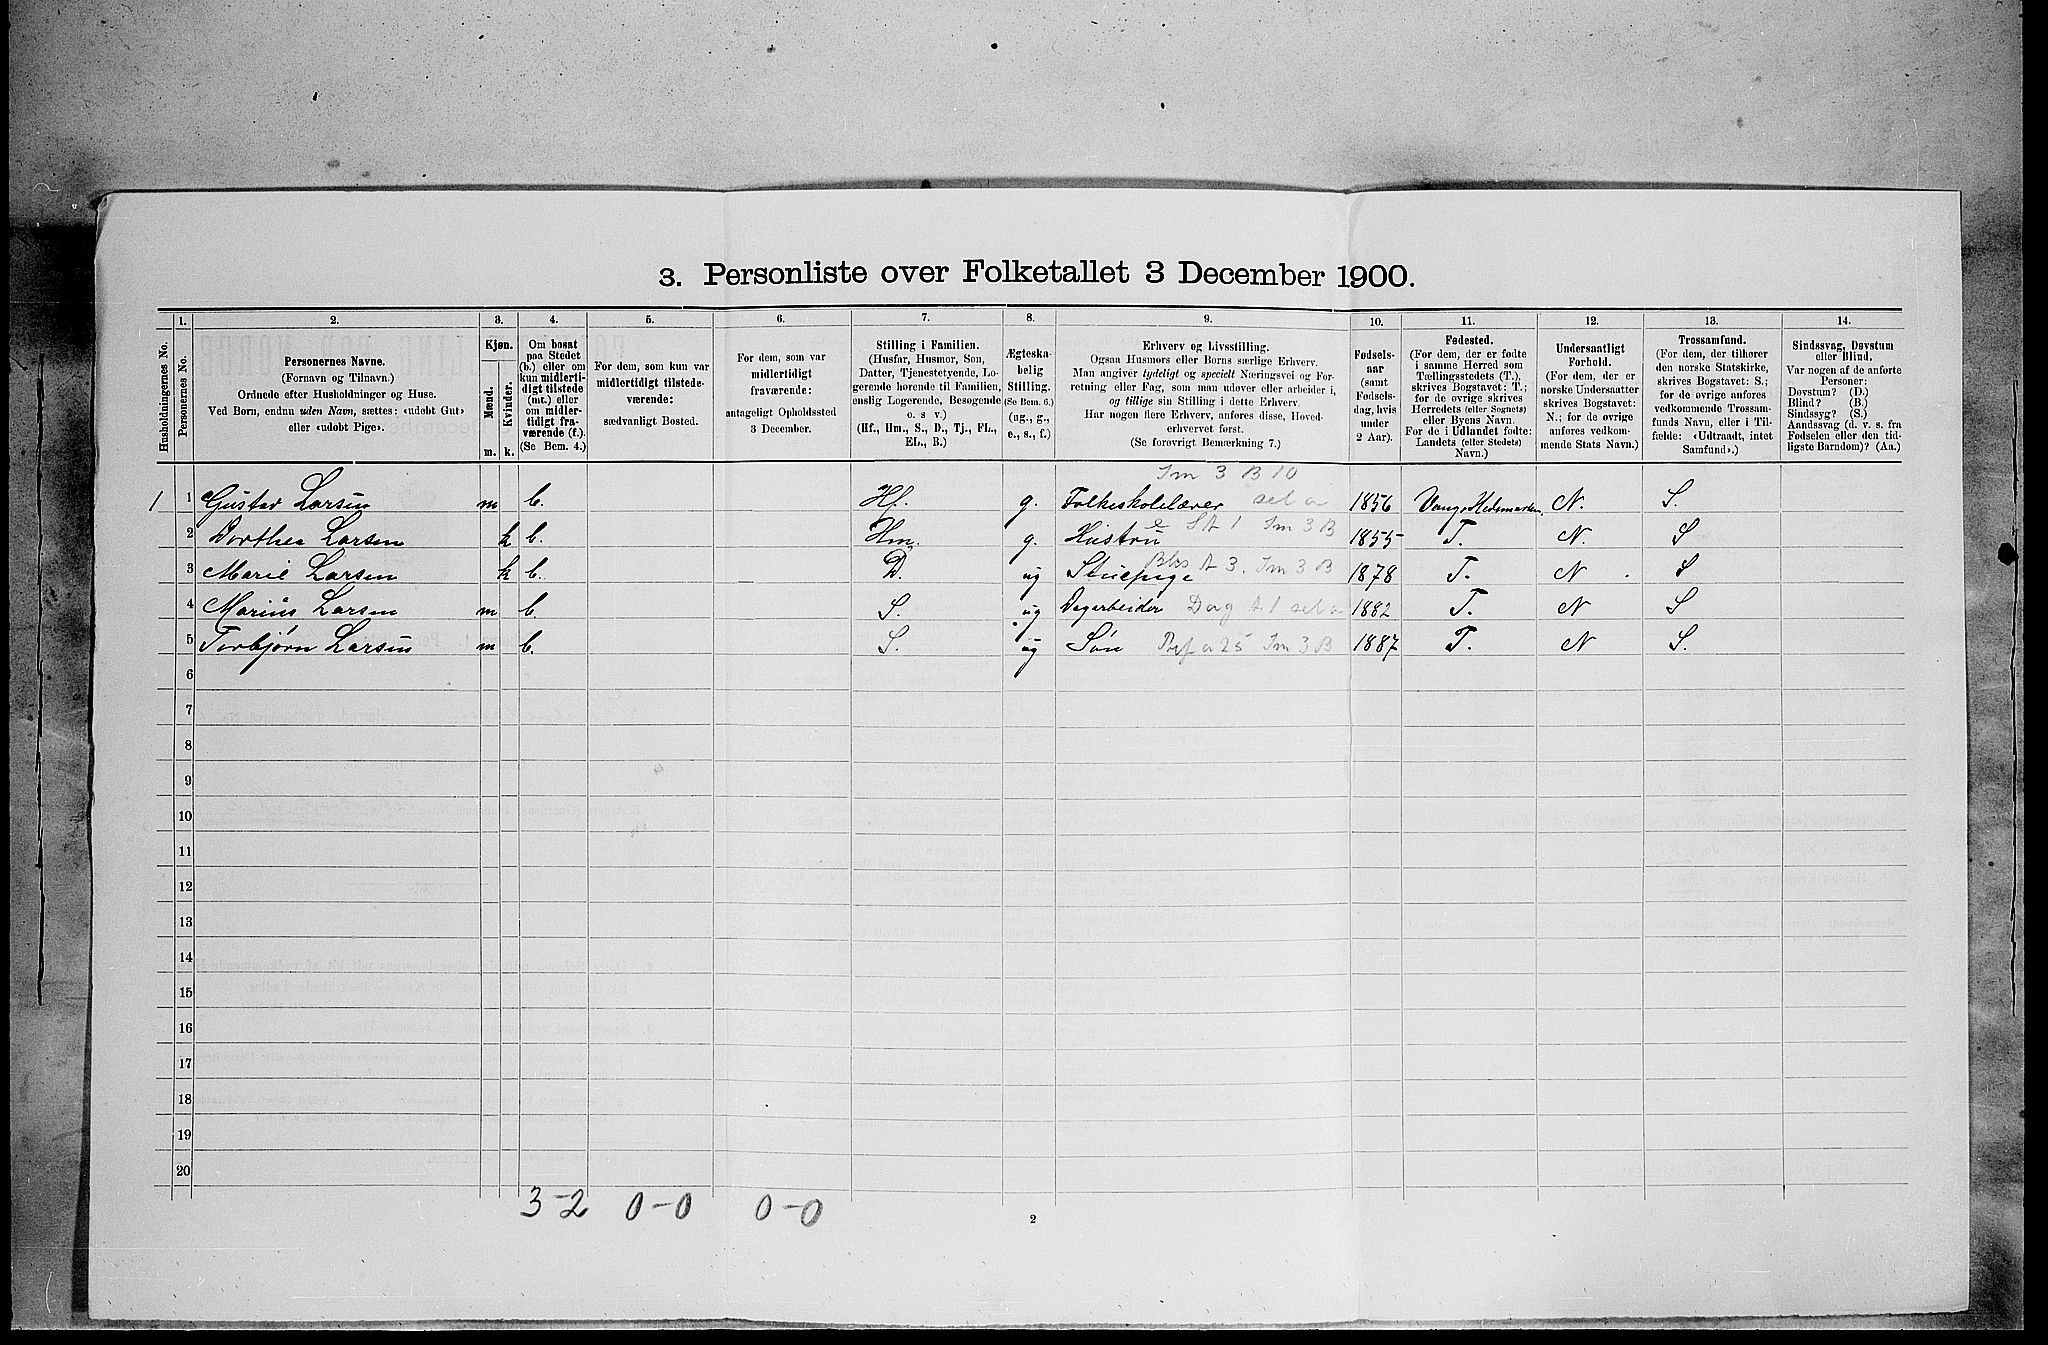 3. Personliste over Folketallet 3 December 1900.
1. 2. 3. 4. 5. 6. 7. 8. 9. 10. 11. 12. 13. 14.
Husholdningernes No.
Personernes No.
Personernes Navne.
(Fornavn og Tilnavn.)
Ordnede efter Husholdninger og Huse.
Ved Børn, endnu uden Navn, sættes: «udøbt Gut»
eller «udøbt Pige».
Kjøn.
Mænd.
Kvinder.
m. k.
Om bosat
paa Stedet
(b.) eller om
kun midlerti-
digt tilstede
(mt.) eller
om midler-
tidigt fra-
værende (f.).
(Se Bem. 4.)
For dem, som kun var
midlertidigt tilstede-
værende:
sædvanligt Bosted.
For dem, som var
midlertidigt
fraværende:
antageligt Opholdssted
3 December.
Stilling i Familien.
(Husfar, Husmor, Søn,
Datter, Tjenestetyende, Lo-
gerende hørende til Familien,
enslig Logerende, Besøgende
o. s v.)
(Hf., Hm., S., D., Tj., FL.,
EL., B.)
Ægteska-
belig
Stilling.
(Se Bem. 6.)
(ug., g.,
e., s., f.)
Erhverv og Livsstilling.
Ogsaa Husmors eller Børns særlige Erhverv.
Man angiver tydeligt og specielt Næringsvei og For-
retning eller Fag, som man udøver eller arbeider i,
og tillige sin Stilling i dette Erhverv.
Har nogen flere Erhverv, anføres disse, Hoved-
erhvervet først.
(Se forøvrigt Bemærkning 7.)
Fødsels-
aar
(samt
Fødsels-
dag, hvis
under
2 Aar).
Fødested.
(For dem, der er fødte
i samme Herred som
Tællingsstedets (T.),
skrives Bogstavet: T.;
for de øvrige skrives
Herredets (eller Sognets)
eller Byens Navn.
For de i Udlandet fødte:
Landets (eller Stedets)
Navn.)
Undersaatligt
Forhold.
(For dem, der er
norske Undersaatter
skrives Bogstavet:
N.; for de øvrige
anføres vedkom-
mende Stats Navn.)
Trossamfund.
(For dem, der tilhører
den norske Statskirke,
skrives Bogstavet: S.;
for de øvrige anføres
vedkommende Trossam-
funds Navn, eller i Til-
fælde: «Udtraadt, intet
Samfund».)
Sindssvag, Døvstum
eller Blind.
Var nogen af de anførte
Personer:
Døvstum? (D.)
Blind? (B.)
Sindssyg? (S.)
Aandssvag (d. v. s. fra
Fødselen eller den tid-
ligste Barndom)? (Aa.)
Im 3 B 10
1 1 Gustav Larsen m b. Hf. g. Folkeskolelærer sel a 1856 Vang, Hedemarken. N. S.
2 Dorthea Larsen k b. Hm. g. Hustru e St 1 Im 3 B 1855 T. N. S
3 Marie Larsen k b. D. ug Stuepige A 3. Im 3 B 1878 T. N S
4 Marius Larsen m b. S. ug Dagarbeider Dag A 1 sel a 1882 T. N S
5 Torbjørn Larsen m b. S. ug Søn a 25 Im 3 B 1887 T. N S.
6
7
8
9
10
11
12
13
14
15
16
17
18
19
20
3-2 0-0 0-0
2